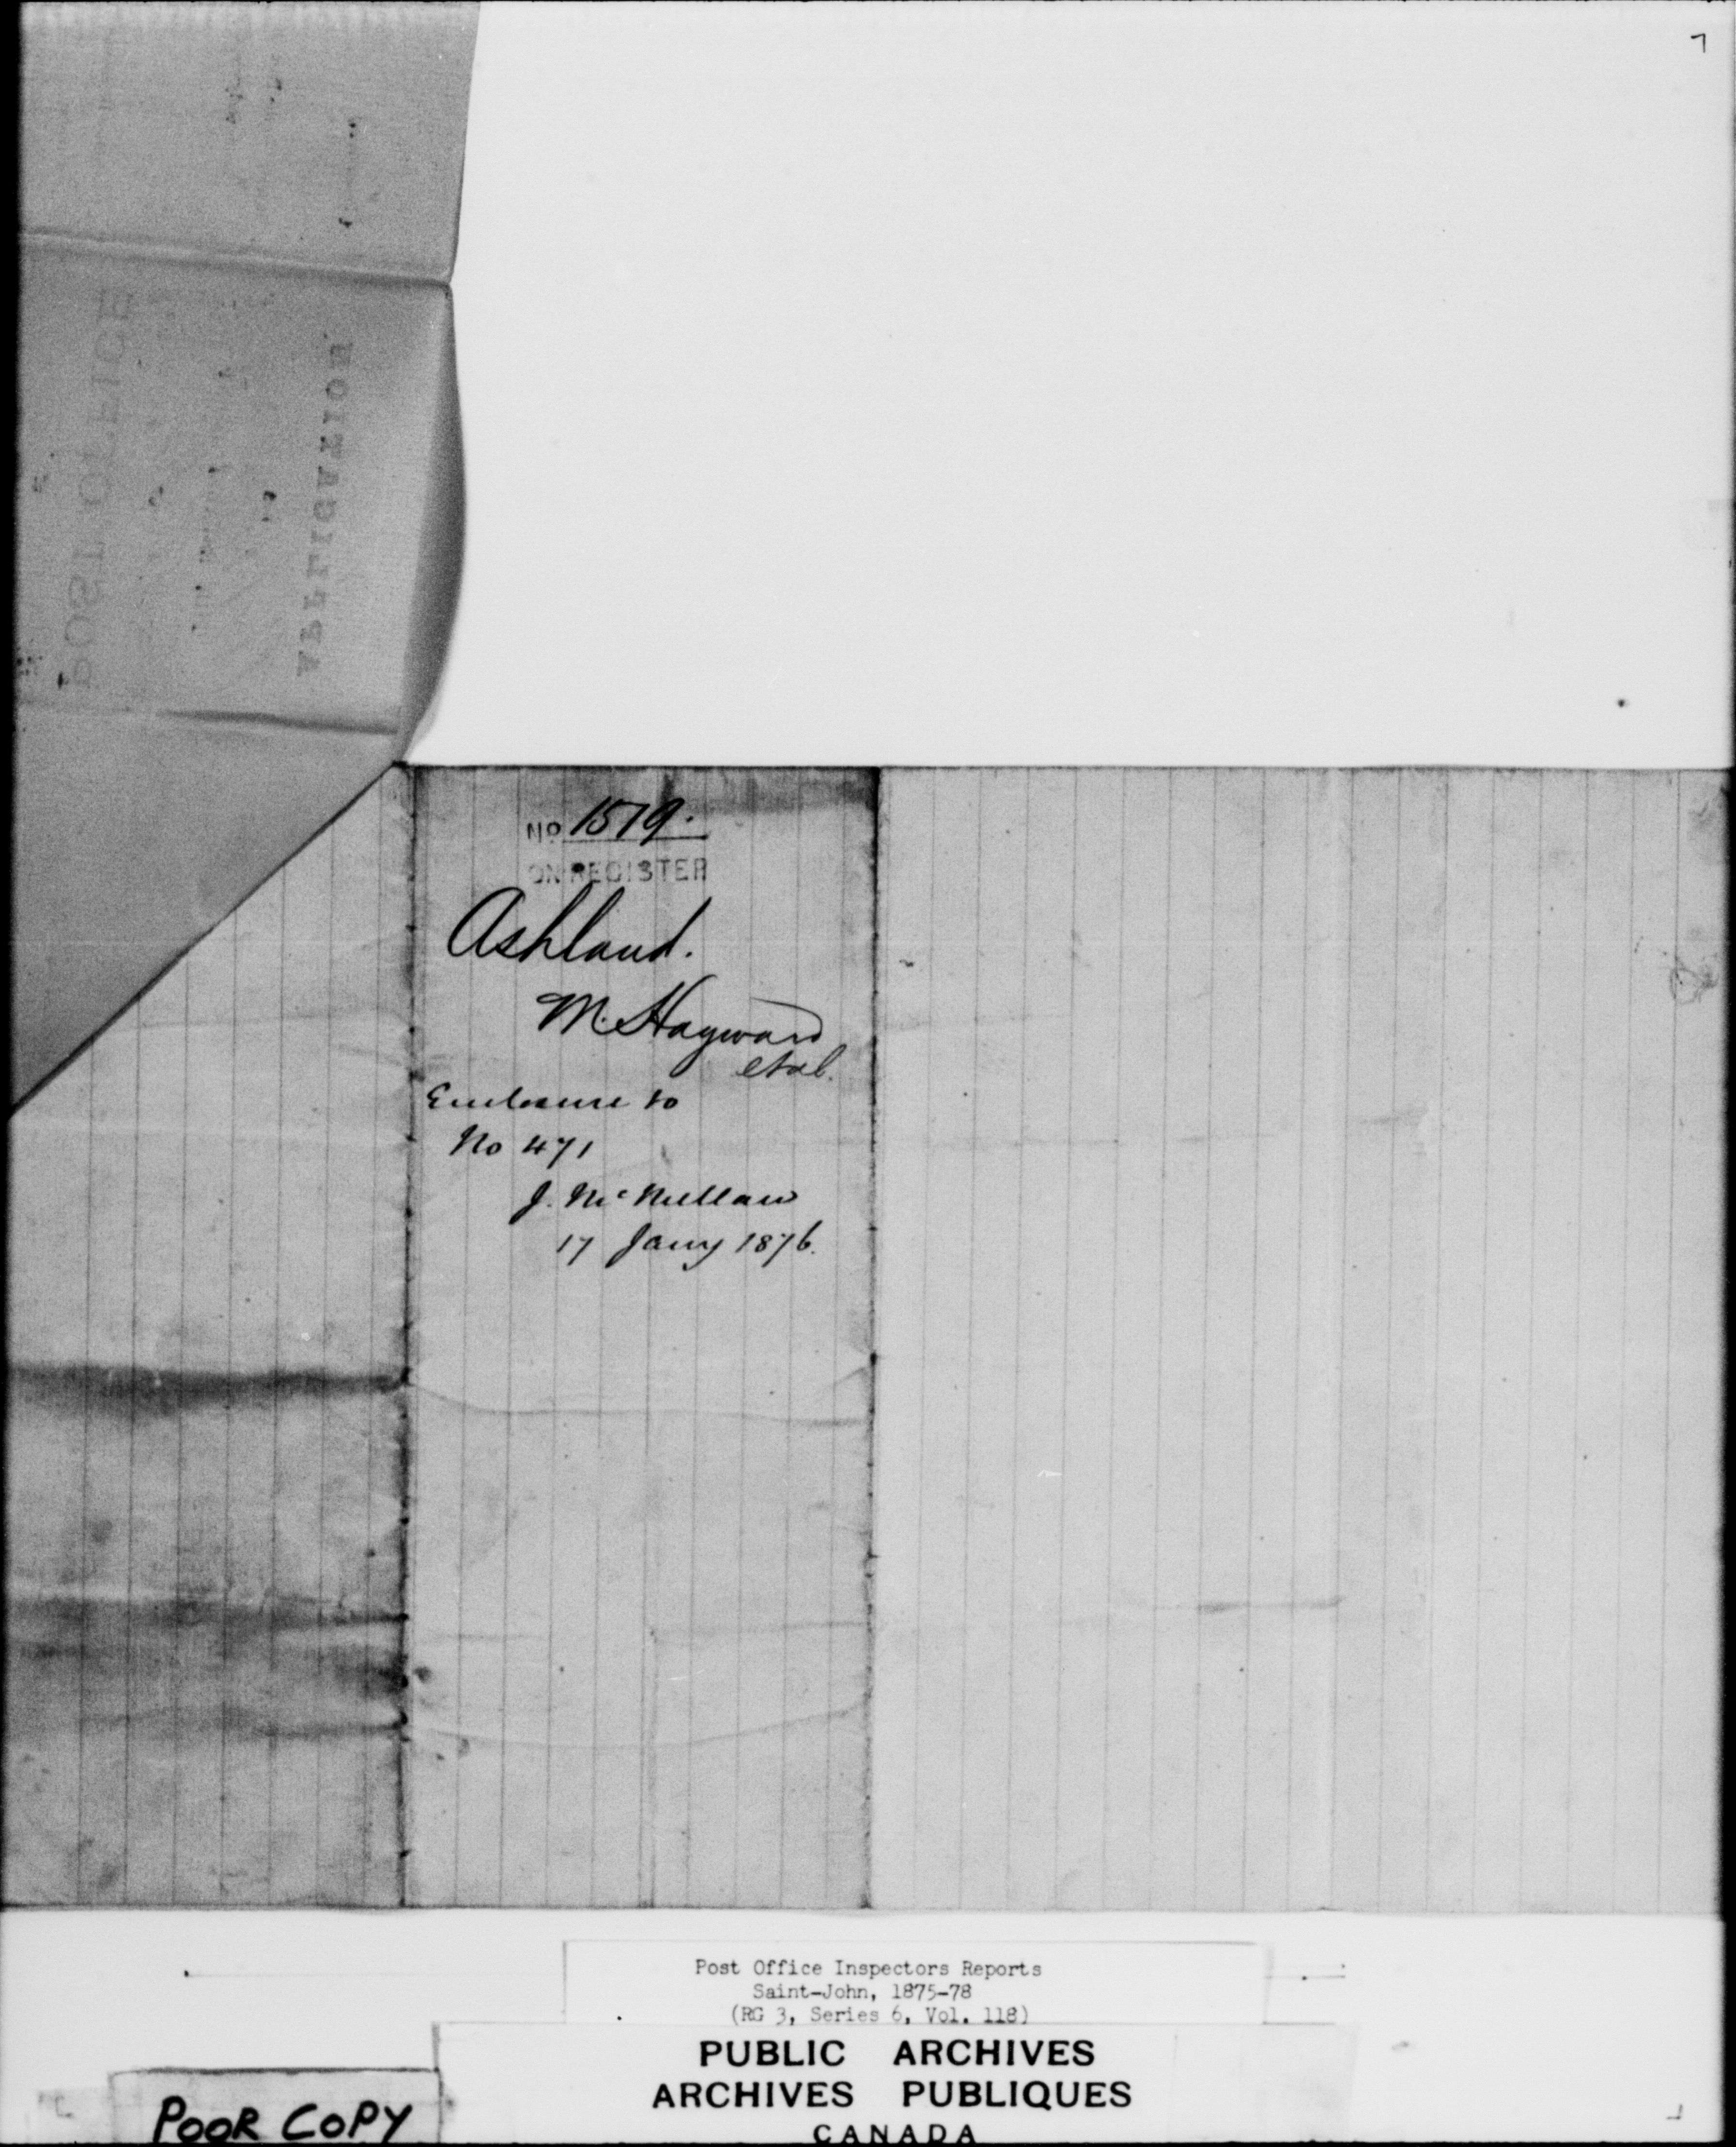 POST OFFICE
APPLICATION
No 1519.
ON REGISTER
Ashland.
M. Hayward
et al.
Enclosure to
No 471
J. McMillan
17 Jany 1876.
Post Office Inspectors Reports
Saint-John, 1875-78
(RG 3, Series 6, Vol. 118)
PUBLIC ARCHIVES
ARCHIVES PUBLIQUES
CANADA
POOR COPY